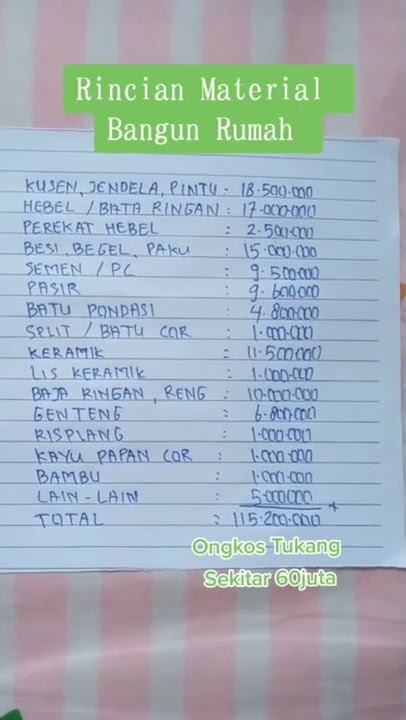 Rincian Material
Bangun Rumah
KUSEN, JENDELA, PINTU : 18.500.000
HEBEL / BATA RINGAN : 17.000.000
PEREKAT HEBEL : 2.500.000
BESI, BEGEL, PAKU : 15.000.000
SEMEN / PC : 9.500.000
PASIR : 9.600.000
BATU PONDASI : 4.800.000
SPLIT / BATU COR : 1.000.000
KERAMIK : 11.500.000
LIS KERAMIK : 1.000.000
BAJA RINGAN, RENG : 10.000.000
GENTENG : 6.800.000
RISPLANG : 1.000.000
KAYU PAPAN COR : 1.000.000
BAMBU : 1.000.000
LAIN - LAIN : 5.000.000 +
TOTAL : 115.200.000
Ongkos Tukang
Sekitar 60juta